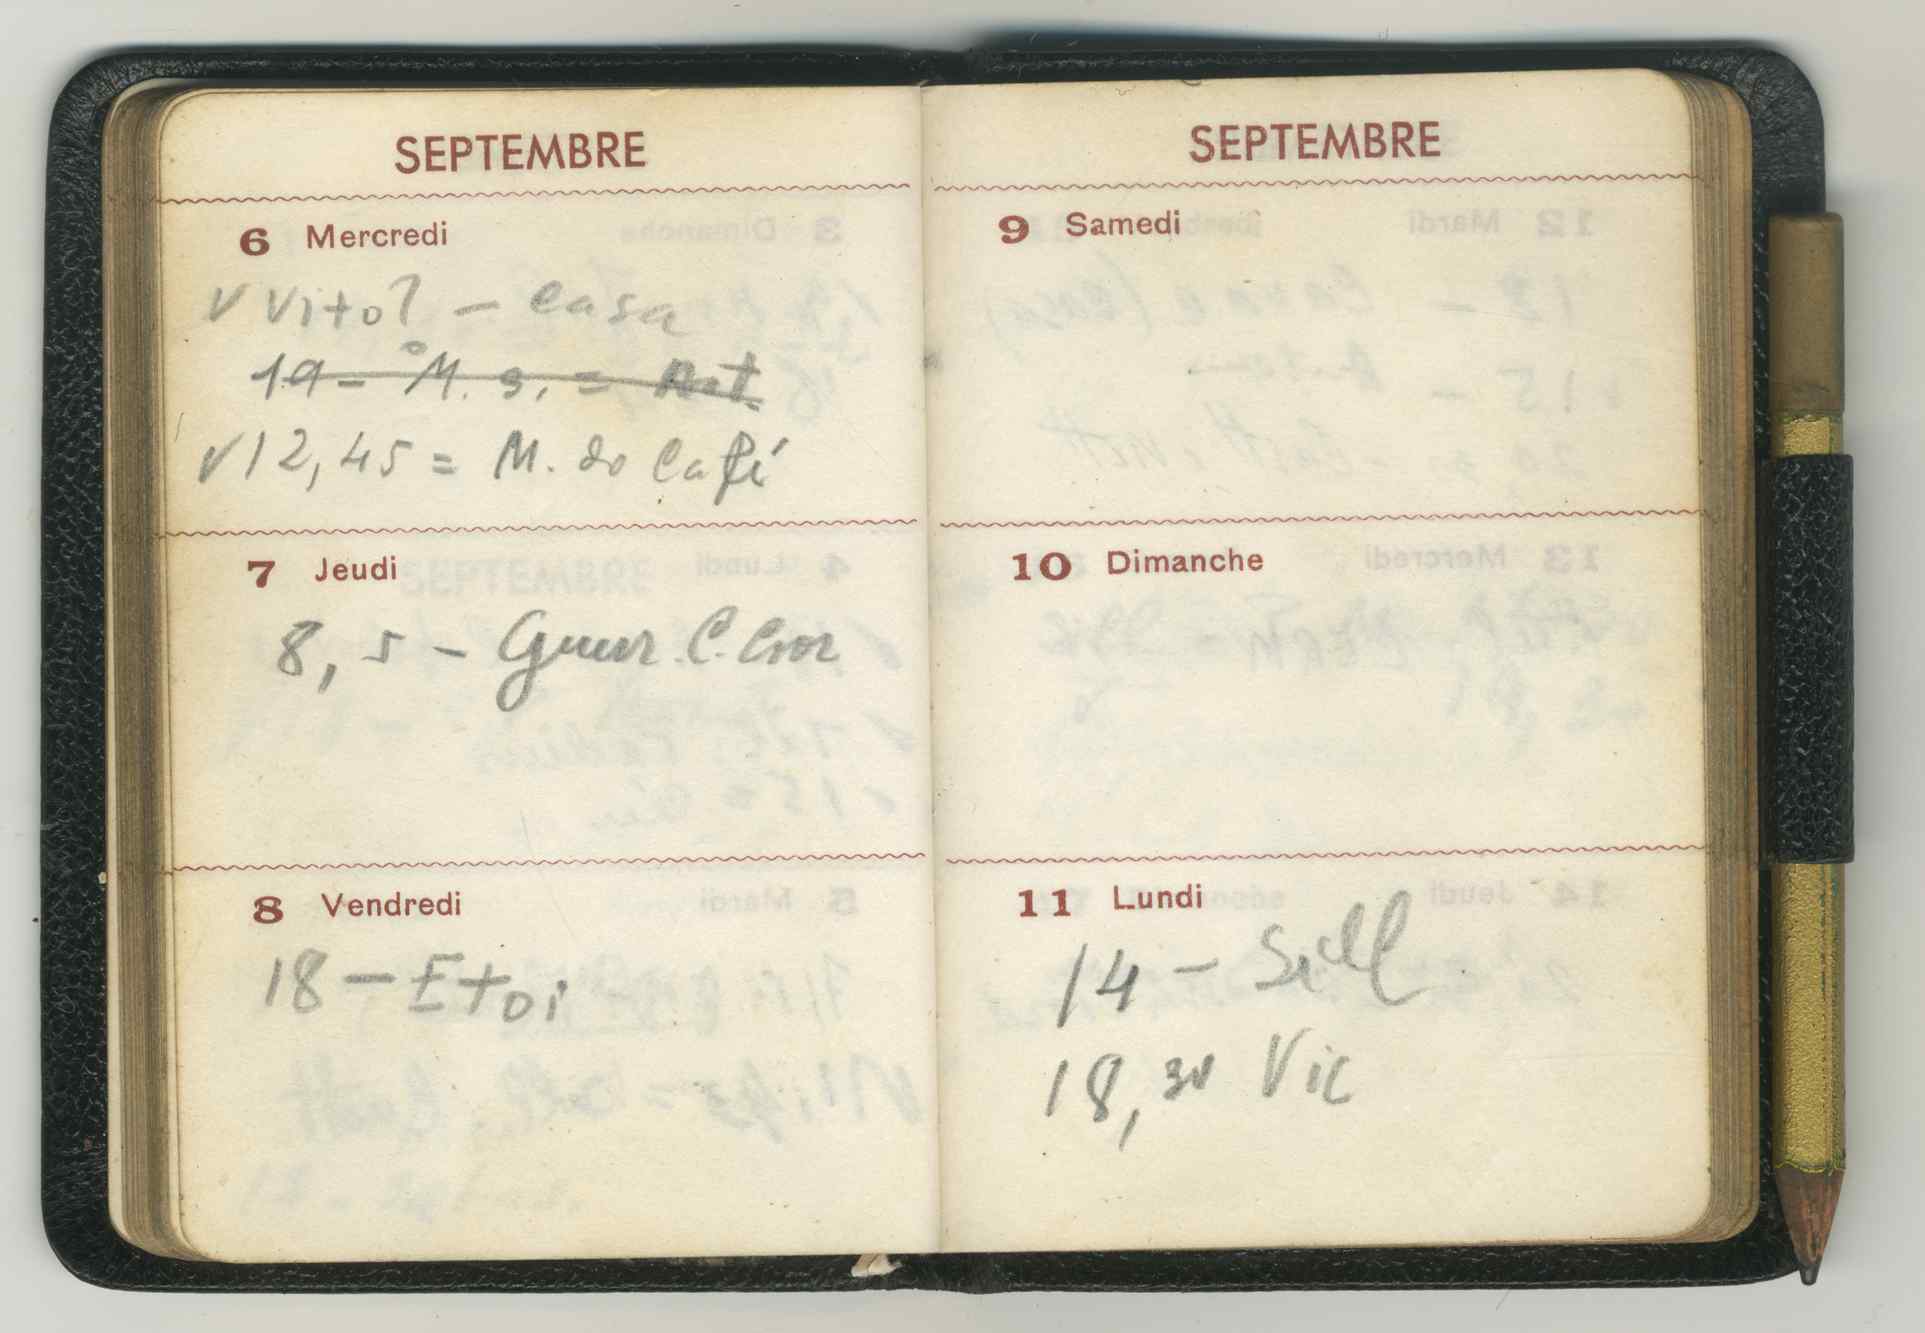 SEPTEMBRE
6 Mercredi
√ Vito? - Casa
19 - M. S. = Ant.
√ 12,45 = M. do Café
7 Jeudi
8, 5 - C. Cror
8 Vendredi
18 - Etoi
SEPTEMBRE
9 Samedi
10 Dimanche
11 Lundi
14 - Sill
18, 30 Vic